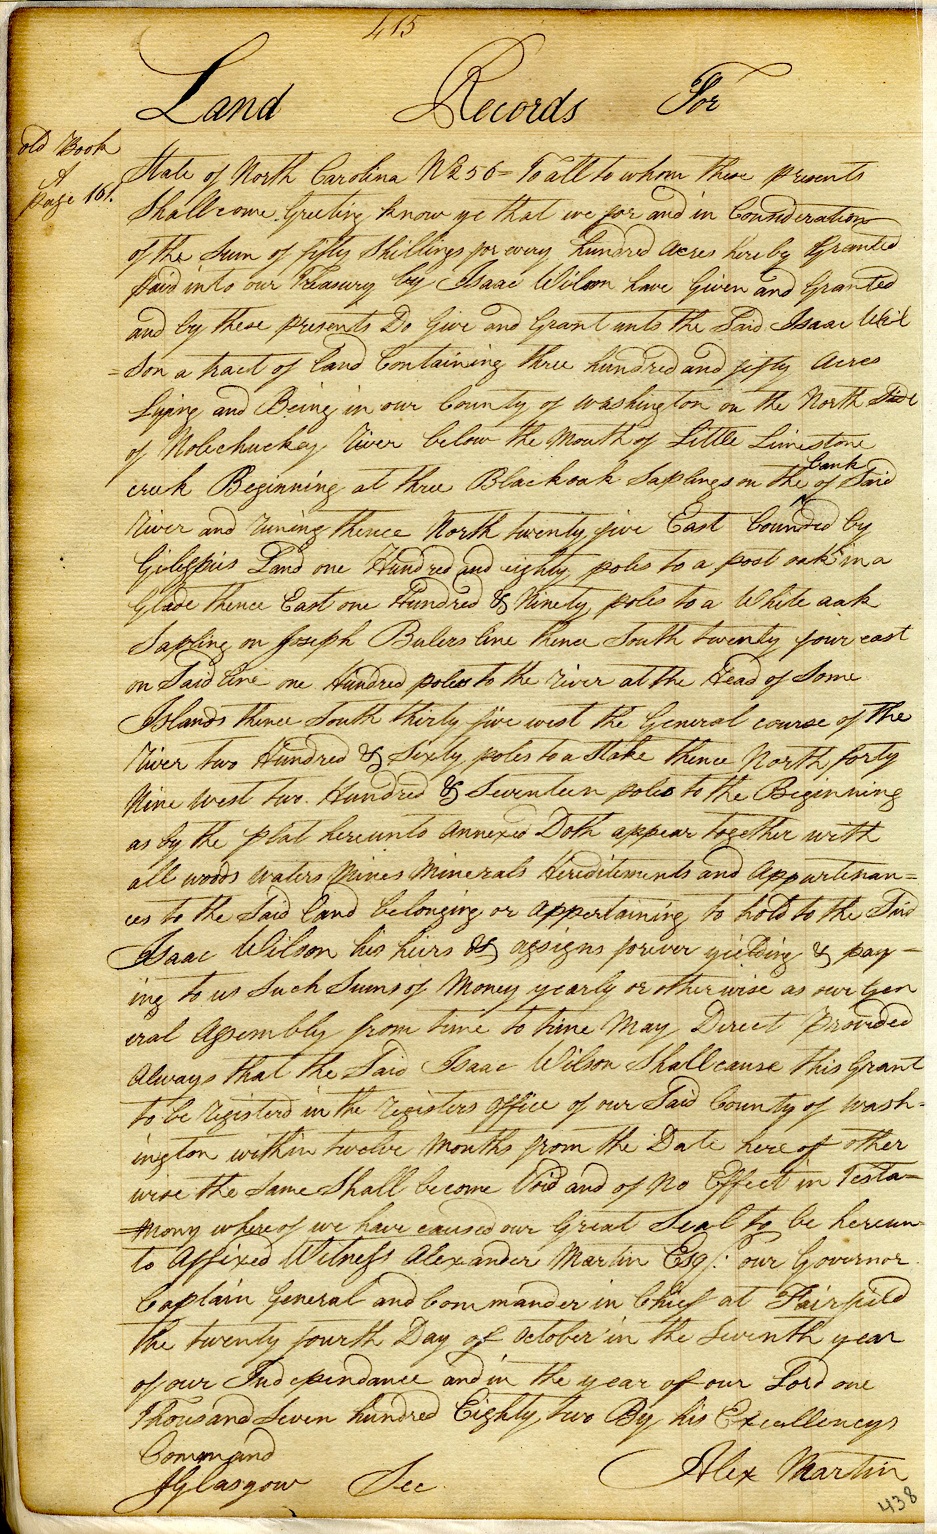 415
Land Records For
old Book
A
page 161.
State of North Carolina No 256 = To all to whom these presents
Shall come Greeting know ye that we for and in Consideration
of the Sum of fifty Shillings for every hundred acres hereby Granted
paid into our Treasury by Isaac Wilson have Given and Granted
and by these presents Do Give and Grant unto the Said Isaac Wil
=son a tract of Land Containing three hundred and fifty acres
Lying and Being in our County of Washington on the North Side
of Nolechuckey River below the Mouth of Little Limestone
creek Beginning at three Blackoak Saplings on the bank of Said
River and runing thence North twenty five East bounded by
Gilespies Land one Hundred and eighty poles to a post oak in a
Glade thence East one Hundred & Ninety poles to a White oak
Sapling on Joseph Bulers line thence South twenty four east
on Said line one Hundred poles to the river at the Head of Some
Islands thence South thirty five west the General course of the
River two Hundred & Sixty poles to a Stake thence North forty
Nine West two Hundred & Seventeen poles to the Beginning
as by the plat hereunto annexed Doth appear together with
all woods waters Mines Minerals Hereditements and Appurtenan=
ces to the Said Land belonging or appertaining to hold to the Said
Isaac Wilson his heirs & assigns forever yielding & pay=
ing to us Such Sums of Money yearly or otherwise as our Gen
eral Assembly from time to time May Direct Provided
Always that the Said Isaac Wilson Shall cause this Grant
to be registerd in the registers office of our Said County of Wash=
ington within twelve Months from the Date here of other
wise the Same Shall become Void and of No Effect in Testa=
=mony whereof we have caused our Great Seal to be hereun=
to Affixed Witness Alexander Martin Esq: our Governor
Captain General and Commander in Chief at Fairfield
the twenty fourth Day of October in the Seventh year
of our Independance and in the year of our Lord one
Thousand Seven hundred Eighty two By his Excellencys
Command
JGlasgow Sec Alex Martin
438